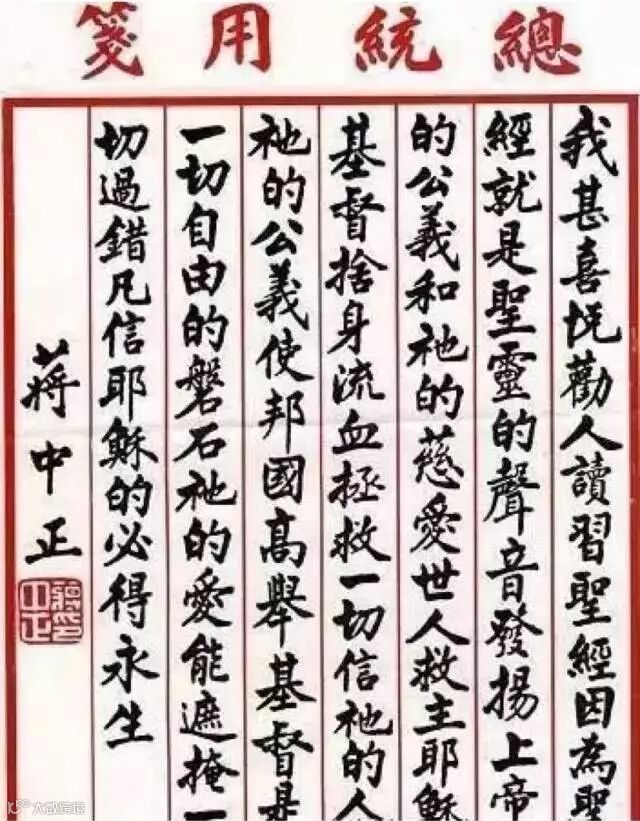 總統用箋
我甚喜悅勸人讀習聖經因為聖
經就是聖靈的聲音發揚上帝
的公義和祂的慈愛世人救主耶穌
基督捨身流血拯救一切信祂的人
祂的公義使邦國高舉基督是
一切自由的磐石祂的愛能遮掩一
切過錯凡信耶穌的必得永生
蔣中正
蔣印中正
大数跨境